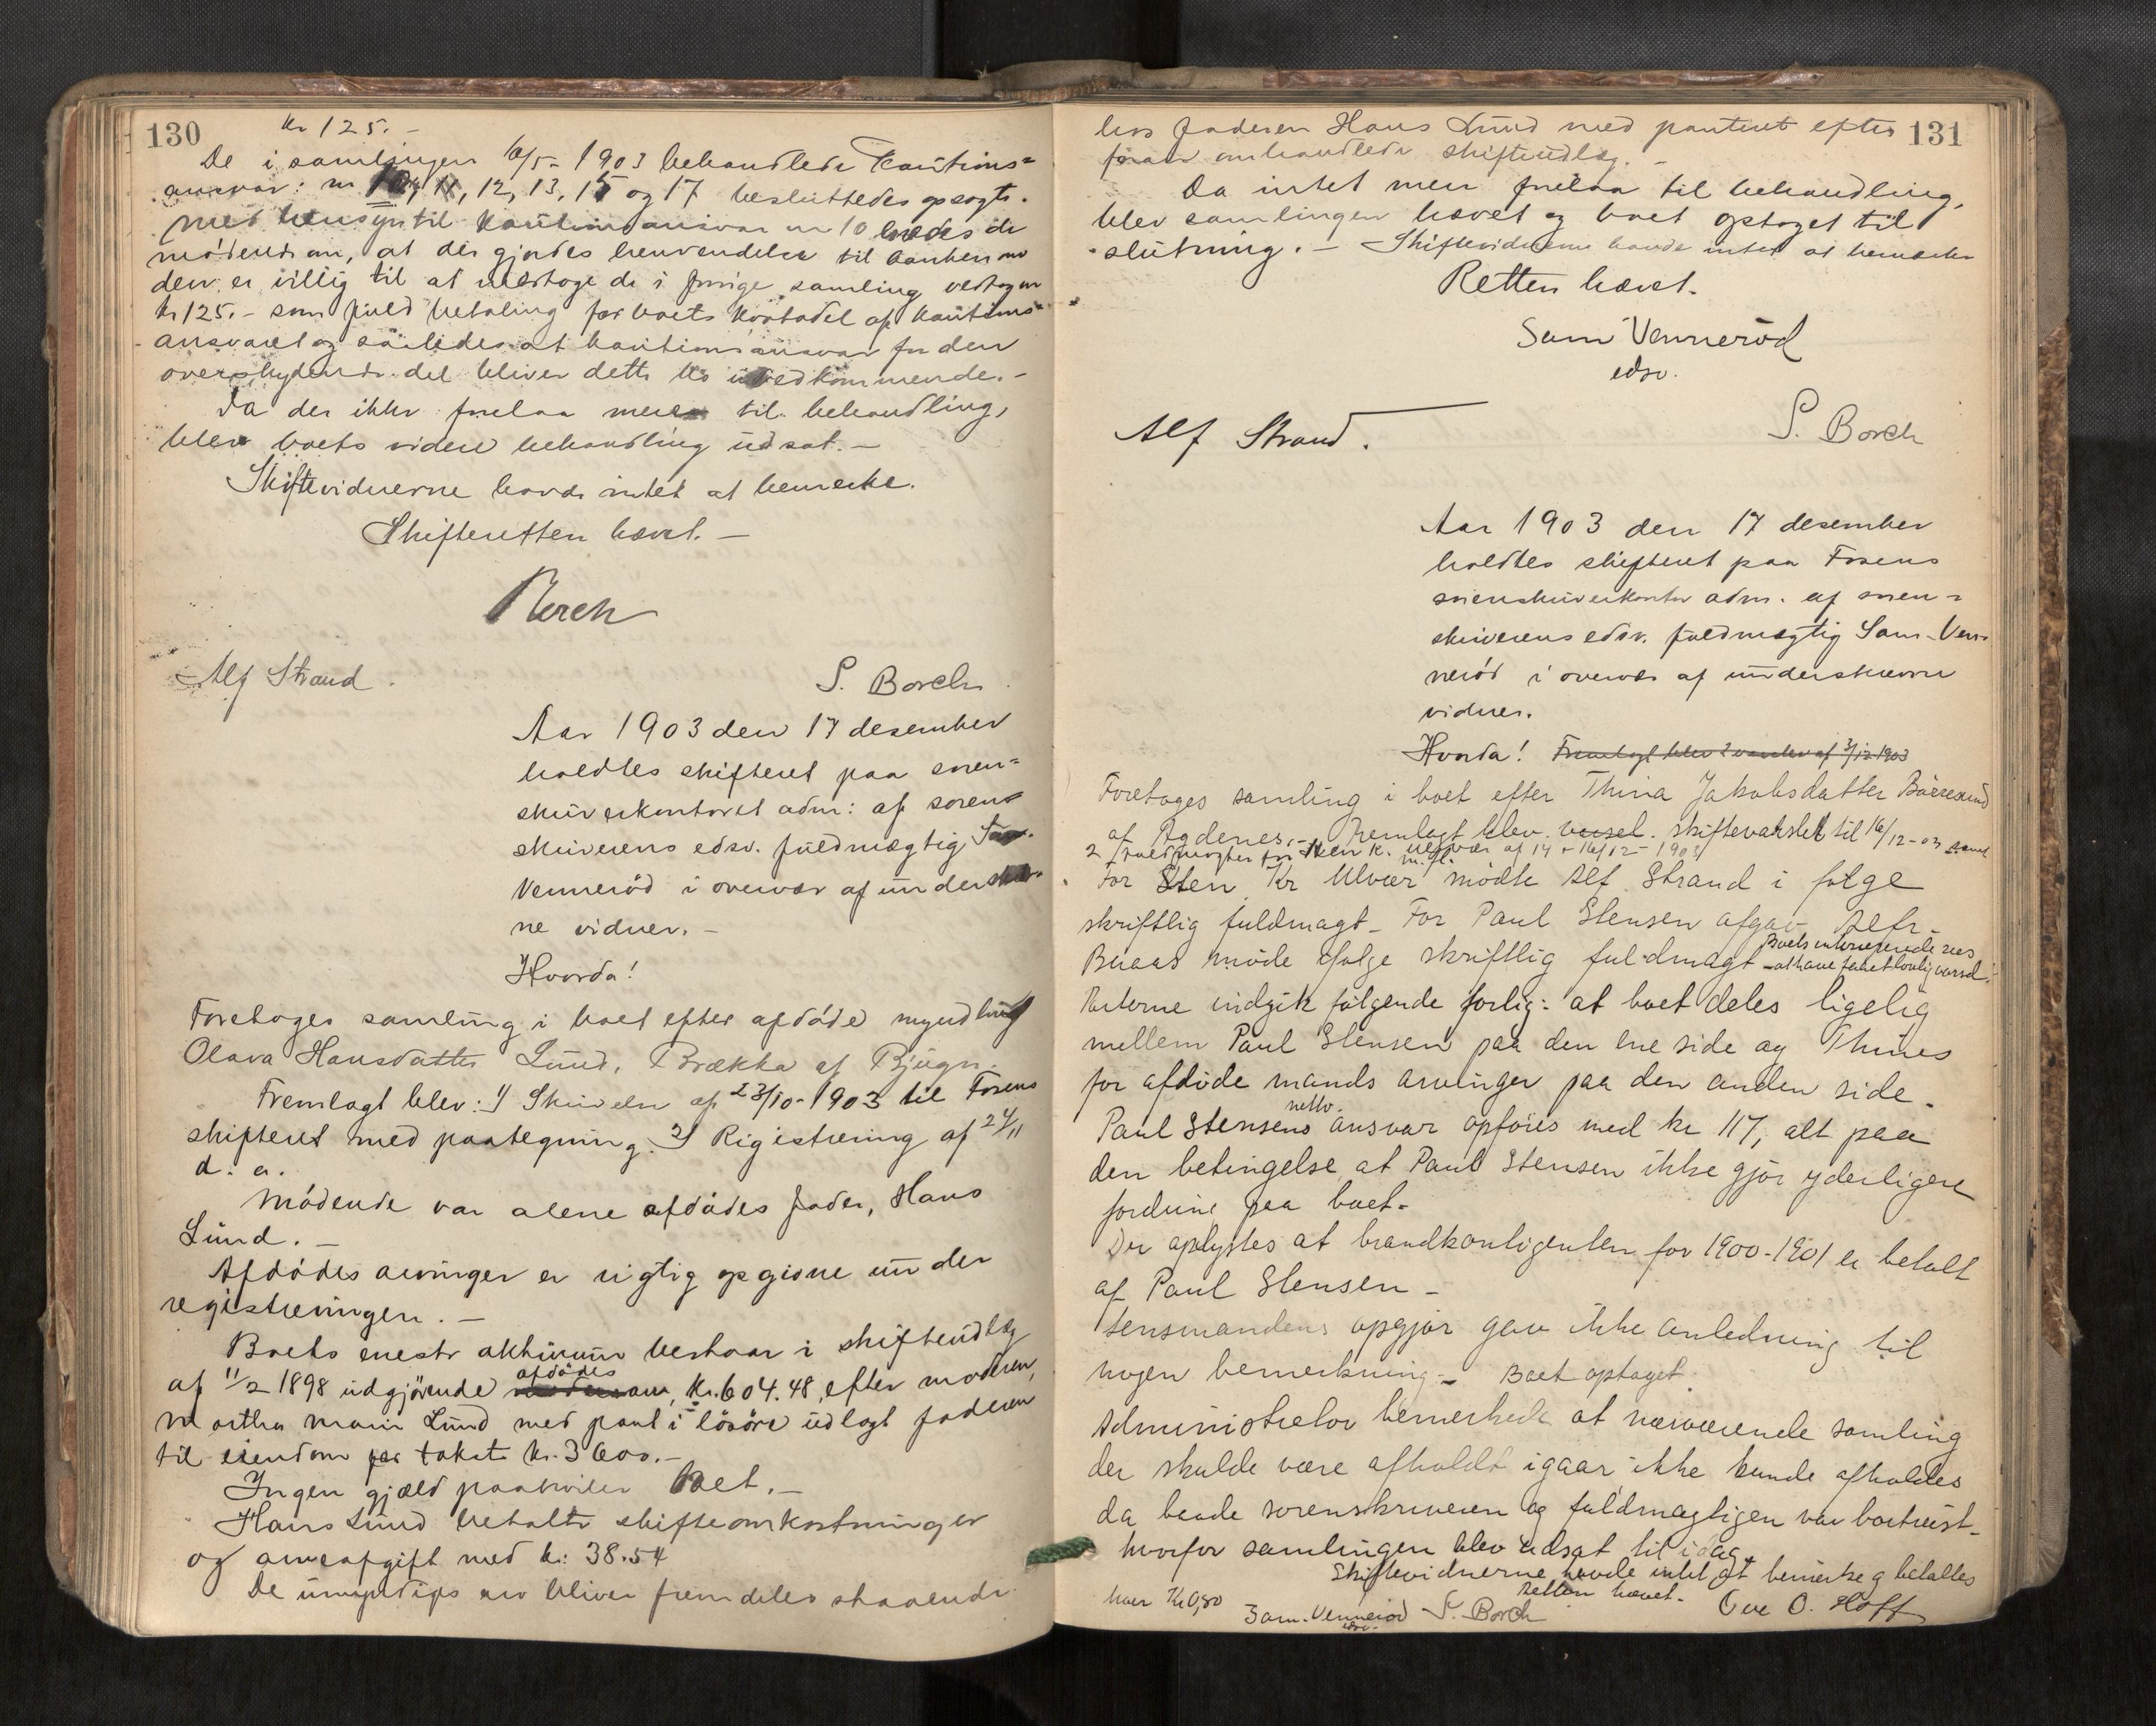 130
Kr 125.-
De i samlingen 16/5- 1903 behandlede kautions=
ansvar: nr 10, 11, 12, 13, 15 og 17 besluttedes opsagt.
Med hensyn til kautionsansvar nr 10 enedes de
mödende om, at der gjordes henvendelse til banken om
den er villig til at modtage de i forrige samling vedtagne
kr 125.- som fuld betaling for boets kvotadel af kautions=
ansvaret og saaledes at kautionsansvar for den
overskydende del bliver dette bo uvedkommende.-
Da der ikke forelaa mere til behandling,
blev boets videre behandling udsat.-
Skiftevidnerne havde intet at bemerke.
Skifteretten hævet.-
Borch
Alf Strand.
S. Borch.
Aar 1903 den 17 desember
holdtes skifteret paa soren=
skriverkontoret adm: af soren=
skriverens edsv. fuldmægtig Sam.
Venneröd i overvær af underskrev=
ne vidner.-
Hvorda!
Foretoges samling i boet efter afdöde myndling
Olava Hansdatter Lund, Brækka af Bjugn.
Fremlagt blev: 1) Skrivelse af 23/10-1903 til Fosens
skifteret med paategning. 2) Registrering af 24/11
d. a.
Mödende var alene afdödes fader, Hans
Lund.-
Afdödes arvinger er rigtig opgivne under
registreringen.-
Boets eneste aktivum bestaar i skifteudlæg
af 11/2 1898 udgjörende afdödes arv, kr. 604.48, efter moderen,
Martha Marie Lund med pant i lösöre udlagt faderen
til eiendom for takst kr. 3600.-
Ingen gjæld paahviler boet.-
Hans Lund betalte skifteomkostninger
og arveafgift med kr: 38.54
De umyndiges arv bliver fremdeles staaende
131
hos faderen Hans Lund med panteret efter
foran omhandlede skifteudlæg.-
Da intet mere forelaa til behandling,
blev samlingen hævet og boet optaget til
slutning.- Skiftevidnerne havde intet at bemerke
Retten hævet.
Sam Venneröd
edsv.
Alf Strand.
S. Borch
Aar 1903 den 17 desember
holdtes skifteret paa Fosens
sorenskriverkontor adm. af soren=
skriverens edsv. fuldmægtig Sam. Ven=
neröd i overvær af underskrevne
vidner.
Hvorda! Fremlagt blev 2 varsler af 3/12 1903
Foretoges samling i boet efter Thina Jakobsdatter Börresund
af Agdenes.- Fremlagt blev varsel. skiftevarslet til 16/12-03 samt
2 fuldmagter fra Sten K. Ulvær af 14 - 16/12 - 1903
For Sten Kr Ulvær m.fl. mödte Alf Strand i fölge
skriftlig fuldmagt - For Paul Stensen afgav Alfr.
Buaas möde ifölge skriftlig fuldmagt - Boets interesserede sees
at have faaet lovlig varsel.
Parterne indgik fölgende forlig: at boet deles ligelig
mellem Paul Stensen paa den ene side og Thines
för afdöde mands arvinger paa den anden side.
Paul Stensens netto ansvar opföres med kr 117, alt paa
den betingelse at Paul Stensen ikke gjör yderligere
fordring paa boet.
Der oplystes at brandkontigenten for 1900-1901 er betalt
af Paul Stensen -
Lensmandens opgjör gav ikke anledning til
nogen bemerkning - Boet optaget.
Administrator bemerkede at nærværende samling
der skulde være afholdt igaar ikke kunde afholdes
da baade sorenskriveren og fuldmægtigen var bortreist -
hvorfor samlingen blev udsat til idag.
Skiftevidnerne havde intet at bemerke og betaltes
hver Kr 0,80 Retten hævet.
Sam. Venneröd S. Borch Ove O. Hoff
edsv.